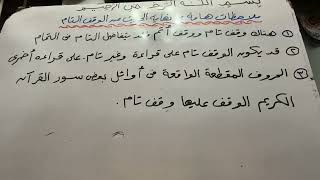 بسم الله الرحمن الرحيم
ملاحظات هامة في نهاية الوقف التام
① هناك وقف تام ووقف أتم فقد يتفاضل التام في التمام
② قد يكون الوقف تام على قراءة وغير تام على قراءة أخرى
③ الحروف المقطعة الواقعة في أوائل بعض سور القرآن
الكريم الوقف عليها وقف تام.